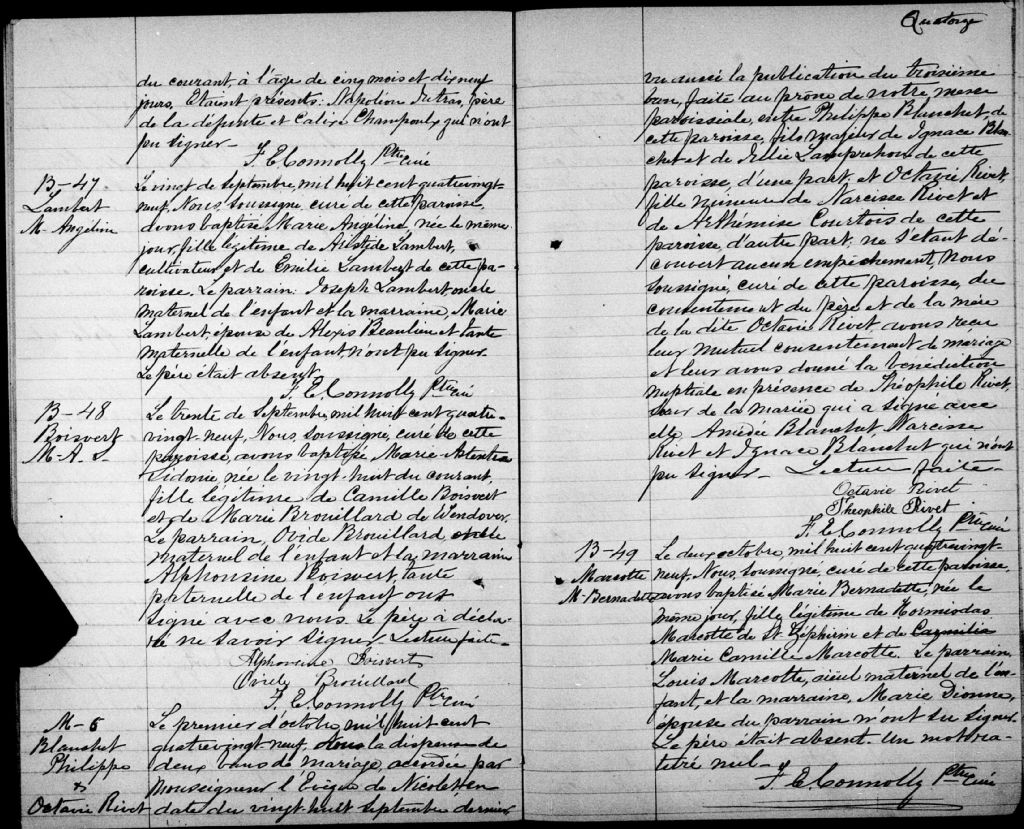 du courant, à l'âge de cinq mois et dix neuf
jours. Etaient présents: Napoléon Jutras, père
de la défunte et Calixe Champoux qui n'ont
pu signer _
F. E. Connolly Ptre curé
B-47
Lambert
M-Angéline
Le vingt de septembre, mil huit cent quatrevingt-
neuf, Nous, soussigné, curé de cette paroisse,
avons baptisé Marie Angéline, née le même
jour, fille légitime de Aristide Lambert,
cultivateur et de Emilie Lambert de cette pa-
roisse. Le parrain: Joseph Lambert, oncle
maternel de l'enfant et la marraine, Marie
Lambert, épouse de Alexis Beaulieu et tante
maternelle de l'enfant n'ont pu signer.
Le père était absent.
F. E. Connolly Ptre curé
B-48
Boisvert
M-A. S-
Le trente de septembre, mil huit cent quatre-
vingt-neuf, Nous, soussigné, curé de cette
paroisse, avons baptisé, Marie
Sidonie, née le vingt-huit du courant,
fille légitime de Camille Boisvert
et de Marie Brouillard de Wendover.
Le parrain, Ovide Brouillard oncle
maternel de l'enfant et la marraine
Alphonsine Boisvert, tante
paternelle de l'enfant ont
signé avec nous. Le père a décla-
ré ne savoir signer. Lecture faite-
Alphonsine Boisvert
Ovide Brouillard
F. E. Connolly Ptre curé
M-5
Blanchet
Philippe
&
Octavie Rivet
Le premier d'octobre, mil huit cent
quatrevingt-neuf, la dispense de
deux bans de mariage, accordée par
Monseigneur l'Evêque de Nicolet, en
date du vingt-huit septembre dernier,
Quatorze
vu aussi la publication du troisième
ban, faite au prône de notre messe
paroissiale, entre Philippe Blanchet, de
cette paroisse, fils majeur de Ignace Blan-
chet et de Julie Lamprehon de cette
paroisse, d'une part, et Octavie Rivet,
fille mineure de Narcisse Rivet et
de Arthémise Courtois de cette
paroisse, d'autre part, ne s'étant dé-
couvert aucun empêchement, Nous
soussigné, curé de cette paroisse, du
consentement du père et de la mère
de la dite Octavie Rivet, avons reçu
leur mutuel consentement de mariage
et leur avons donné la bénédiction
nuptiale en présence de Théophile Rivet,
sœur de la mariée qui a signé avec
elle, Amédée Blanchet, Narcisse
Rivet et Ignace Blanchet qui n'ont
pu signer _ Lecture faite _
Octavie Rivet
Théophile Rivet
F. E. Connolly Ptre curé
B-49
Marcotte
M-Bernadette
Le deux octobre, mil huit cent quatrevingt-
neuf, Nous, soussigné, curé de cette paroisse,
avons baptisé Marie Bernadette, née le
même jour, fille légitime de Hormisdas
Marcotte de St Zéphirin et de
Marie Camille Marcotte. Le parrain,
Louis Marcotte, aïeul maternel de l'en-
fant, et la marraine, Marie Dionne,
épouse du parrain n'ont su signer.
Le père était absent. Un mot ra-
turé nul _
F. E. Connolly Ptre curé